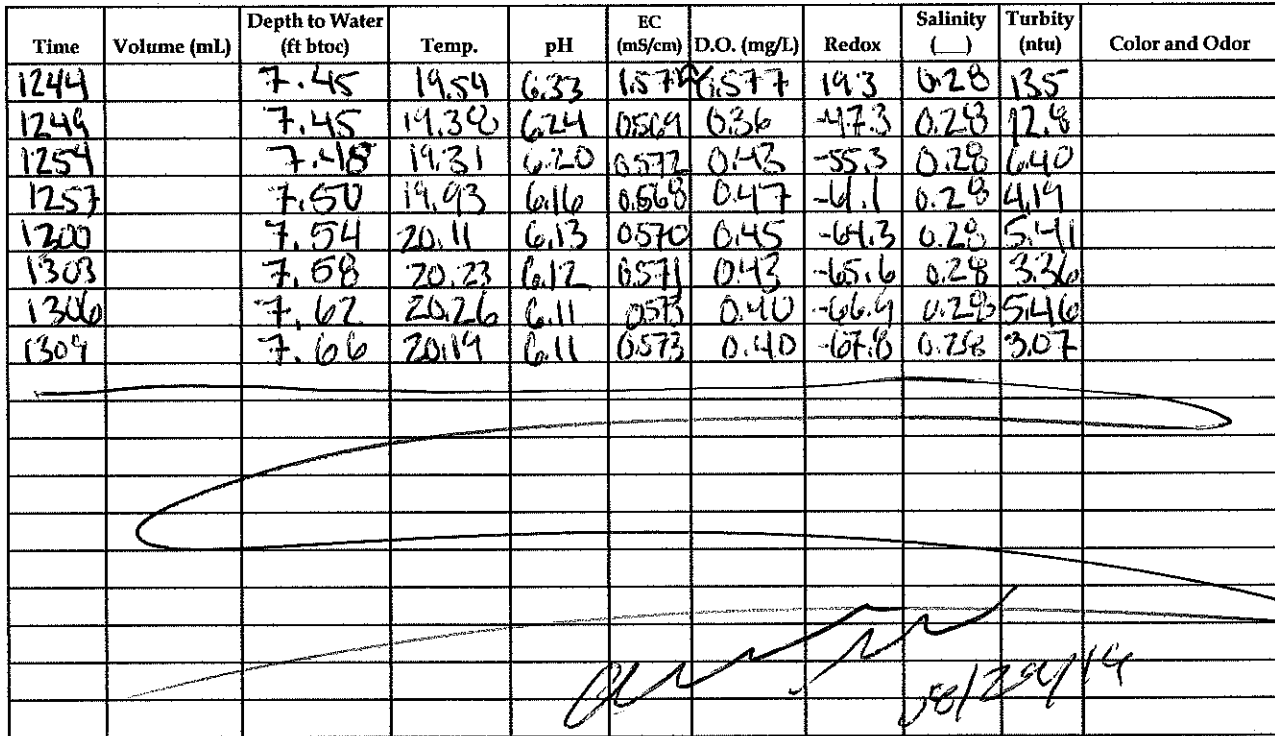 Time Volume (mL) Depth to Water (ft btoc) Temp. pH EC (mS/cm) D.O. (mg/L) Redox Salinity (__) Turbity (ntu) Color and Odor
1244 7.45 19.54 6.33 1.577 19.3 0.28 13.5
1249 7.45 19.38 6.24 0.569 0.36 -47.3 0.28 12.8
1254 7.48 19.31 6.20 0.572 0.43 -55.3 0.28 6.40
1257 7.50 19.93 6.16 0.568 0.47 -61.1 0.28 4.19
1200 7.54 20.11 6.13 0.570 0.45 -64.3 0.28 5.41
1303 7.58 20.23 6.12 0.571 0.43 -65.6 0.28 3.36
1306 7.62 20.26 6.11 0.573 0.40 -66.9 0.28 5.46
1309 7.66 20.19 6.11 0.573 0.40 -67.8 0.28 3.07
08/29/19